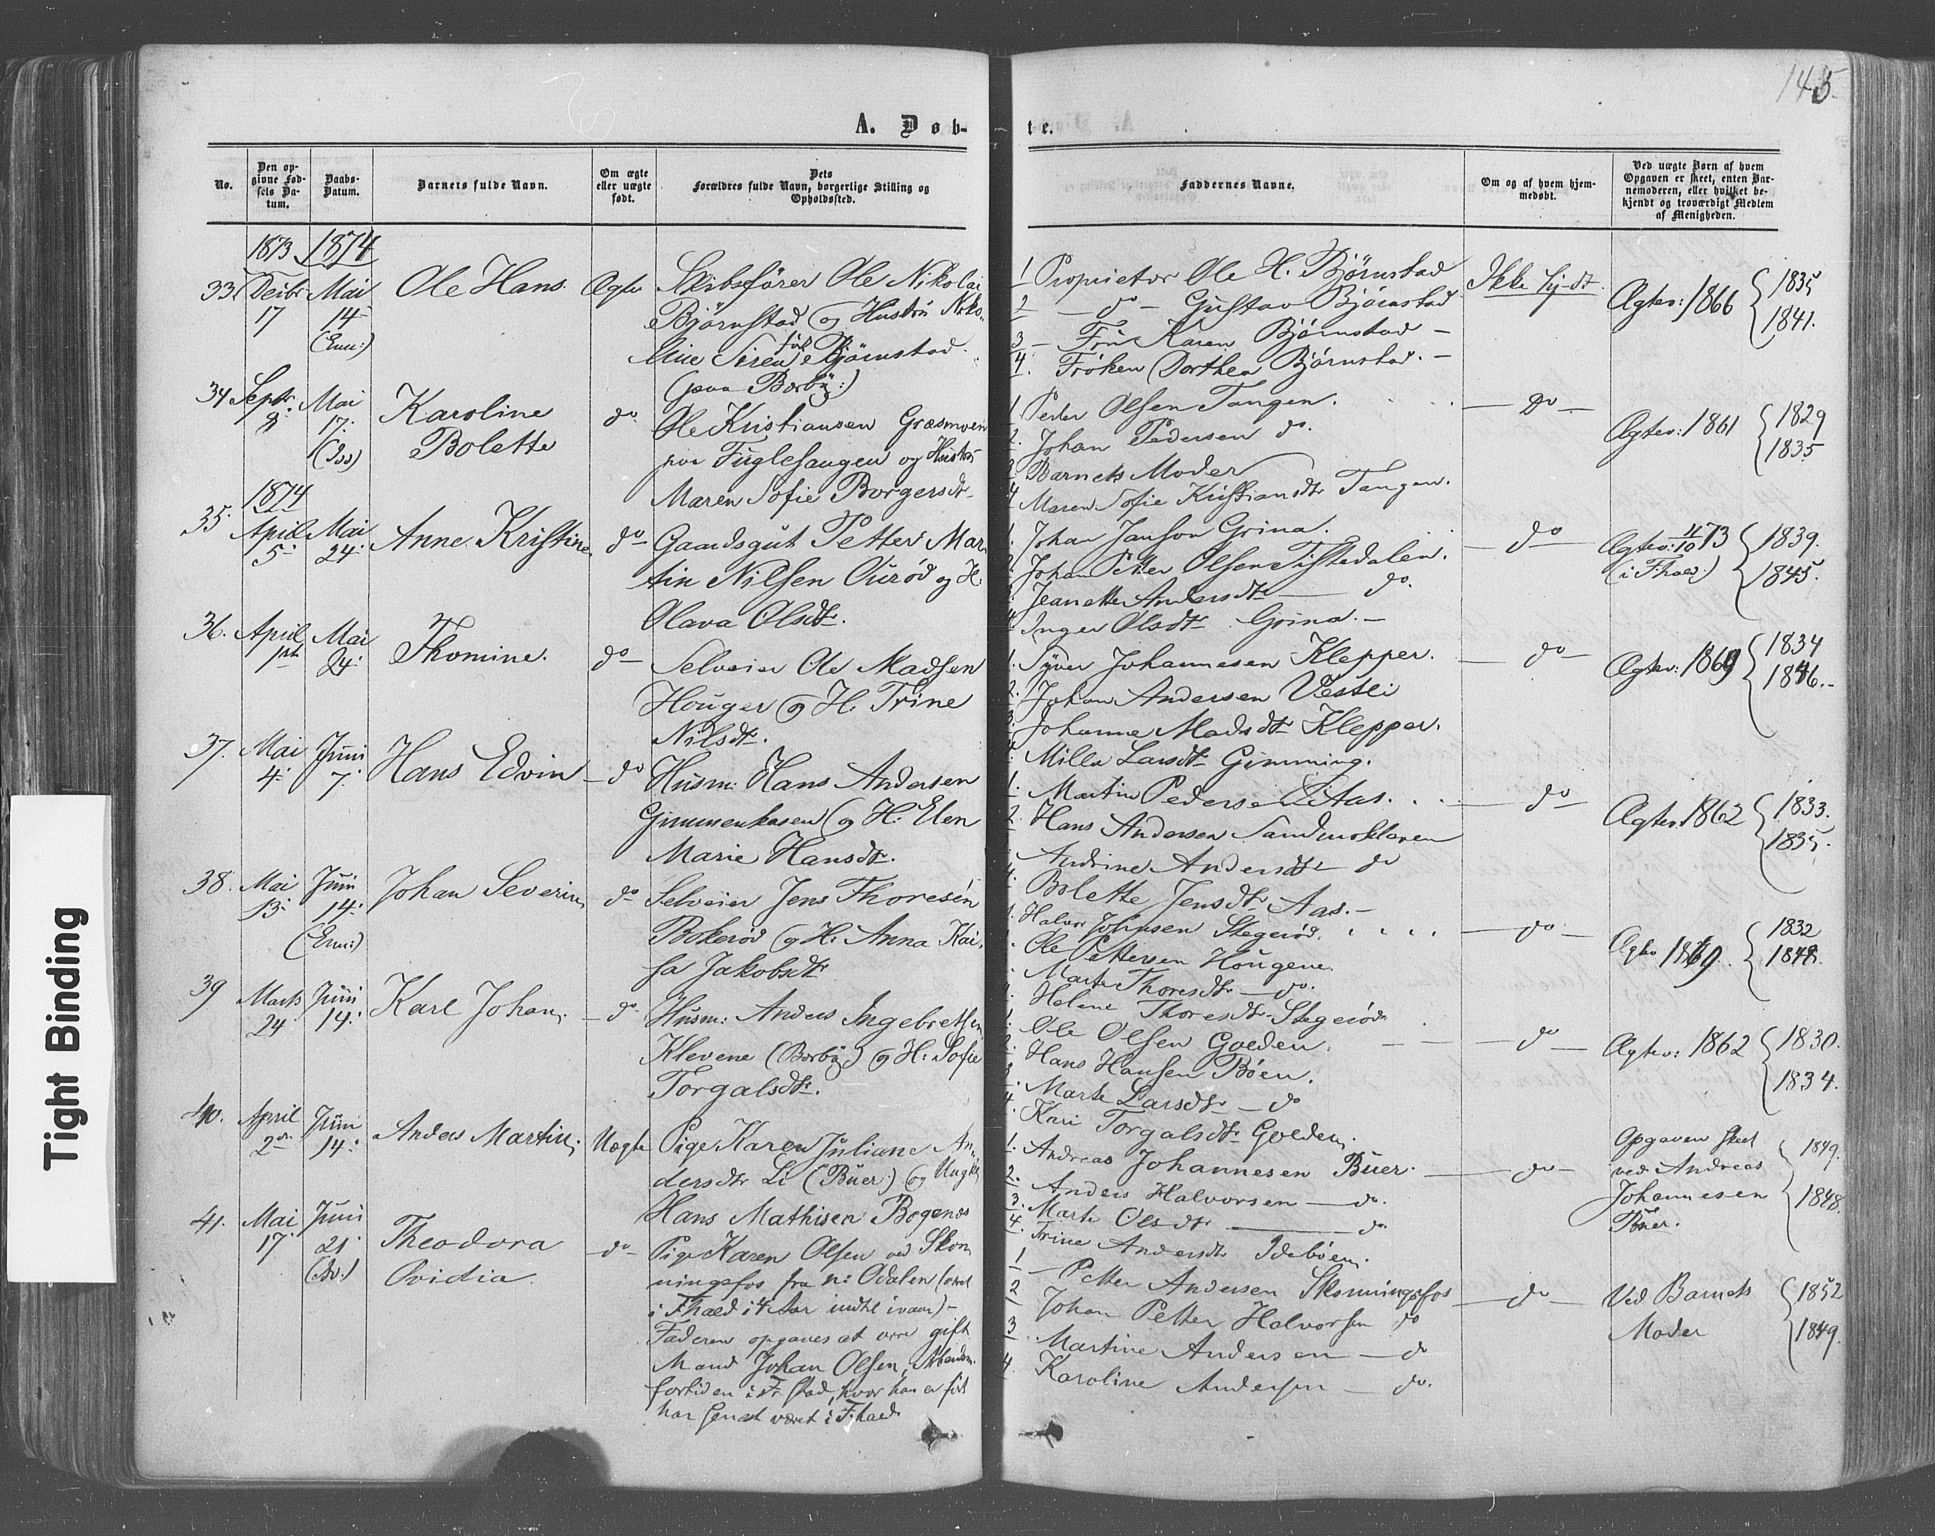 145.
A. Døb-
te.
No.
Den opgivne Fødsels Datum.
Daabs-Datum.
Barnets fulde Navn.
Om ægte eller uægte født.
Dets Forældres fulde Navn, borgerlige Stilling og Opholdssted.
Faddernes Navne.
Om og af hvem hjemmedøbt.
Ved uægte Barn af hvem Opgaven er skeet, enten Barnemoderen, eller hvilket bekjendt og troværdigt Medlem af Menigheden.
1873 1874
33 Decbr 17 Mai 14 Ole Hans Ægte
Skibsfører Ole Nikolai
Bjørnstad og Hustru Niko-
line Siren f. Bjørnstad
(paa Bærbÿ:)
1 Proprietær Ole H. Bjørnstad
2 — do — Gustav Bjørnstad
3 — Fru Karen Bjørnstad —
4. Frøken Dorthea Bjørnstad. —
Ikke hj-dt.
Ægtev: 1866 1835 1841.
34 Septbr. 8 Mai 17. Karoline Bolette do.
Ole Kristiansen Græsmoen
paa Fuglesangen og Hustru
Maren Sofie Borgersdtr.
1 Peder Olsen Tangen.
2. Johan Pedersen do.
3 Barnets Moder
4 Maren Sofie Kristiansdtr Tangen.
— Do —
Ægtev: 1861 1829 1835
1874
35. April 5. Mai 24. Anne Kristine do
Gaardsgut Petter Mar-
tin Nilsen Ourød og H:
Olava Olsdtr.
1. Johan Janson Grina.
2. Johan Petter Olsen Tistedalen.
3. Jeanette Andersdtr — do.
4. Inger Olsdtr Grina. —
— do —
Ægtev: 4/10 73 (i Fhald) 1839. 1845.
36. April 1st Mai 24. Thomine. do
Selveier Ole Madsen
Houger og H. Trine
Nilsdtr.
1. Syver Johannesen Klepper.
2. Johan Andersen Vestli
3. Johanne Madsdtr Klepper.
4. Milla Larsdtr Gimming.
— do —
Ægtev: 1869 1834 1846. —
37. Mai 4. Juni 7. Hans Edvin do
Husm: Hans Andersen
Gimmenkasen og H. Elen
Marie Hansdtr.
1. Martin Pedersen Aas.
2. Hans Andersen Sandmoklaven
Andrine Andersdtr do
4. Bolette Jensdtr Aas. —
— do —
Ægtev. 1862 1833. 1835.
38. Mai 13. Juni 14. Johan Severin do
Selveier Jens Thoresen
Bokerød og H. Anna Kai-
sa Jakobsdtr
1. Halvor Johnsen Stegerød.
Ole Pettersen Hougene
Marte Thoresdtr — do.
4. Helene Thoresdtr Stegerød
— do —
Ægtev 1869. 1832 1848.
39 Marts 24 Juni 14. Karl Johan. do
Husm: Anders Ingebretsen
Klevene (Bærbÿ) og H. Sofie
Torgalsdtr.
1. Ole Olsen Goeden.
2. Hans Hansen Bøen.
3 Marte Larsdtr — do
4. Kari Torgalsdtr Goeden.
— do —
Ægtev: 1862 1830. 1834.
40. April 2den Juni 14. Anders Martin. Uægte
Pige Karen Juliane An-
dersdtr Li (Buer) og Ungk.
Hans Mathisen Bogenæs
1. Andreas Johannesen Buer.
2. Anders Halvorsen — do.
3. Marte Olsdtr — do
4. Trine Andersdtr Idebøen.
— do —
Opgaven skeet
ved Andreas
Johannesen
Buer.
1849. 1848.
41. Mai 17 Juni 21 Theodora Ovidia do
Pige Karen Olsen ved Skon-
ningsfos fra N: Odalen (været
i Fhald i 4 Aar indtil ivaar) —
Faderen opgaves at være gift
Mand Johan Olsen,
fortiden i Fr.stad, hvor han er født
har senest været i Fhald
1 — Petter Andersen Skonningsfos
2 Johan Petter Halvorsen do
3 Martine Andersen — do
4 Karoline Andersen — do.
— do —
Ved Barnets
Moder
1852 1849.
Tight Binding